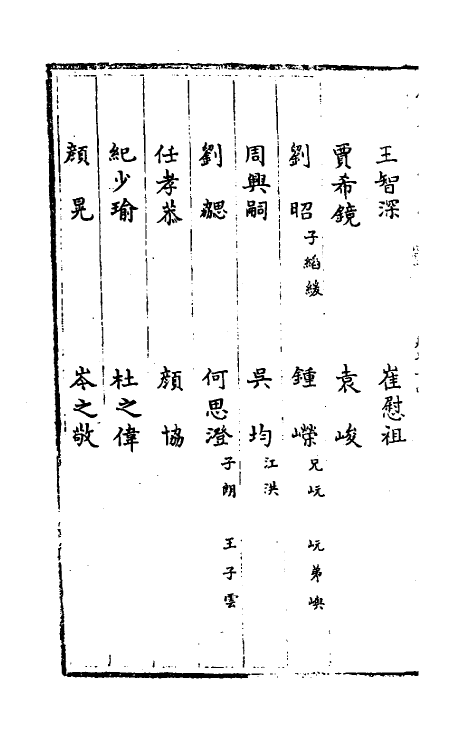 王智深 崔慰祖
賈希鏡 袁峻
劉昭 子縚 緩 鍾嶸 兄岏 岏弟嶼
周興嗣 吳均 江洪
劉勰 何思澄 子朗 王子雲
任孝恭 顔協
紀少瑜 杜之偉
顔晃 岑之敬